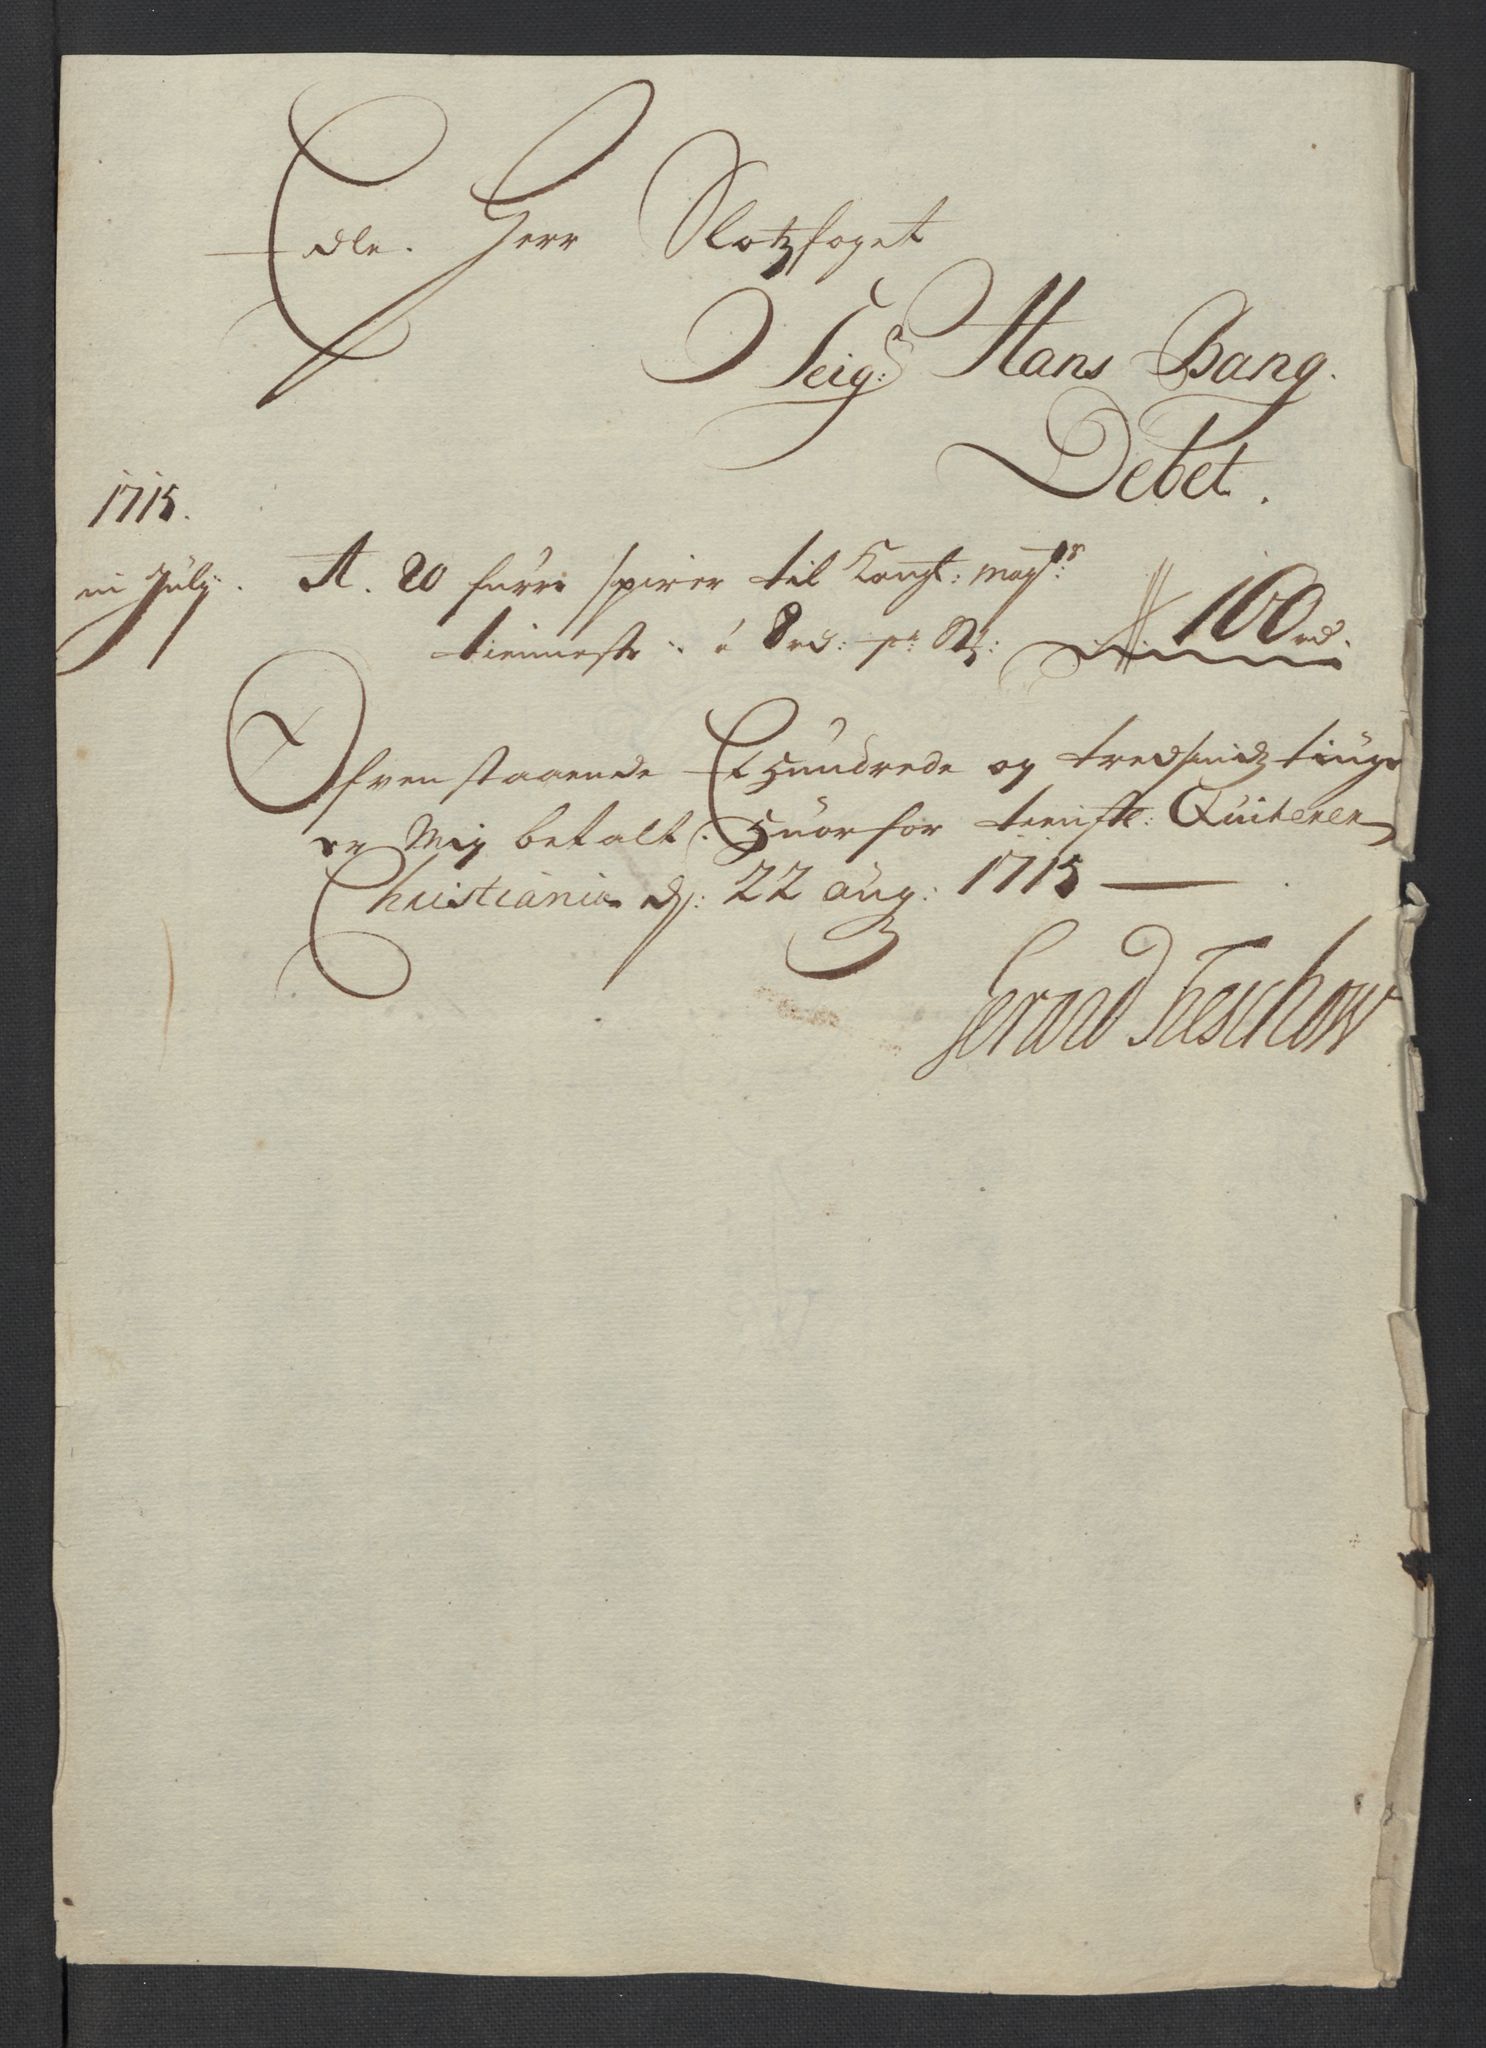 Edle. Herr Slotzfoget
Seigr: Hans Bang.
Debet.
1715.
Julj. A. 20 furre spirer til Kongl: mayts:
tienneste à 8 rd: pr: St: 160 rd.
Ofvenstaaende Et Hundrede og tredsindztiuge
er Mig betalt. Huorfor tienstl: Quiterer
Christiania dj: 22 aug: 1715
Gerard Treschow